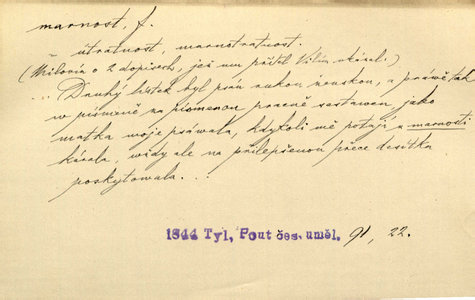 marnost, f.
útratnost, marnotratnost.
(Mišovín o 2 dopisech, jež mu přítel Vilím ukázal.)
... Druhý lístek byl psán rukou ženskou, a právě tak
w písmeně na písmenou pozorně sestawen, jako
matka moje psáwala, kdykoli mě potají z marnosti
kárala, wždy ale na přilepšenou přece desítku
poskytowala. . .
1844 Tyl, Pout čes. uměl. 91, 22.